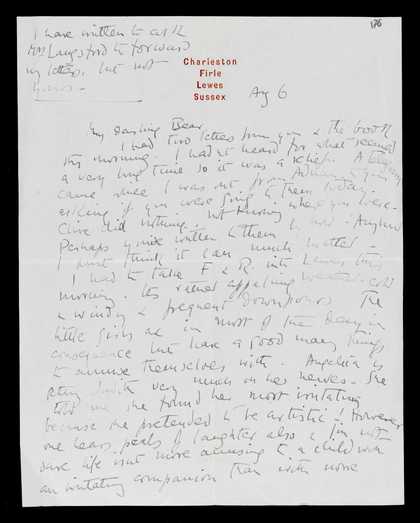 176
I have written to ask
Mrs Langford to forward
my letters, but not
yours.
Charleston
Firle
Lewes
Sussex
Aug 6
My darling Bear
I had two letters from you & the book
this morning. I hadn't heard for what seemed
a very long time so it was a relief. A telegram
came while I was out from Adrian & Karin
asking if you were going to them today.
Clive did nothing, not knowing where you were.
Perhaps you've written to them by now. Anyhow
I don't think it can much matter.
I had to take F & R. into Lewes this
morning. Its rather appalling weather - cold
& windy & frequent downpours. The
little girls are in most of the day in
consequence but have a good many things
to amuse themselves with. Angelica is
getting Judith very much on her nerves. She
told me she found her most irritating
because she pretended to be artistic! However
one hears peals of laughter also & I'm not
sure life isn't more amusing to a child with
an irritating companion than with none